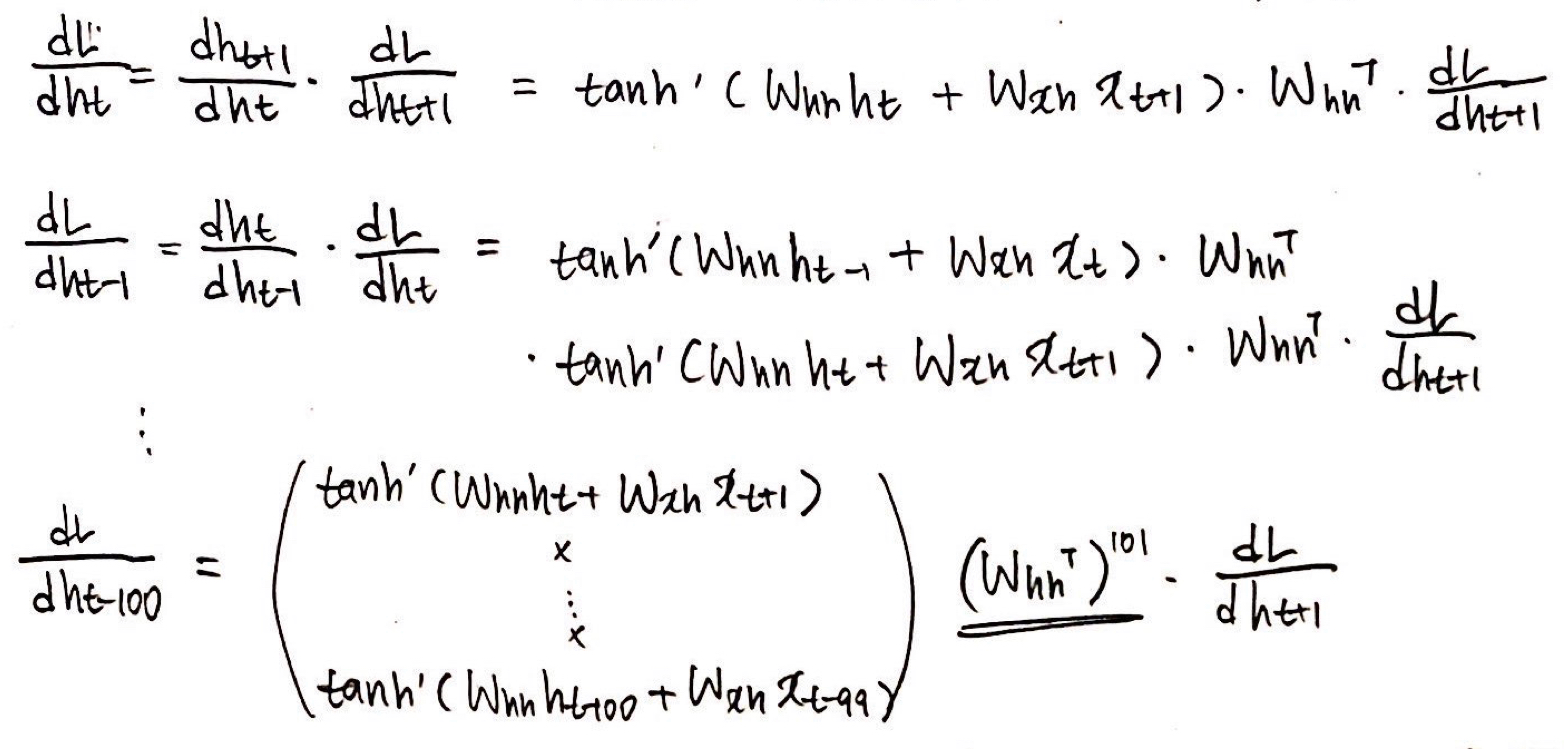 dL/dht = dht+1/dht · dL/dht+1 = tanh'(Whh ht + Wxh xt+1) · Whh^T · dL/dht+1
dL/dht-1 = dht/dht-1 · dL/dht = tanh'(Whh ht-1 + Wxh xt) · Whh^T
· tanh'(Whh ht + Wxh xt+1) · Whh^T · dL/dht+1
⋮
dL/dht-100 = ( tanh'(Whh ht + Wxh xt+1)
×
⋮
×
tanh'(Whh ht-100 + Wxh xt-99) ) (Whh^T)^101 · dL/dht+1